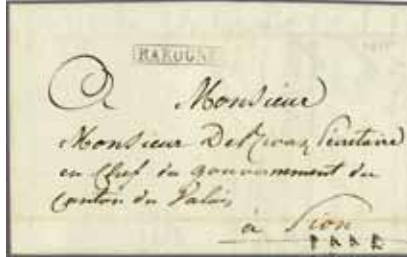 RAROGNE
A Monsieur
Monsieur Secrétaire
en Chef du gouvernement du
Canton du Valais
à Sion